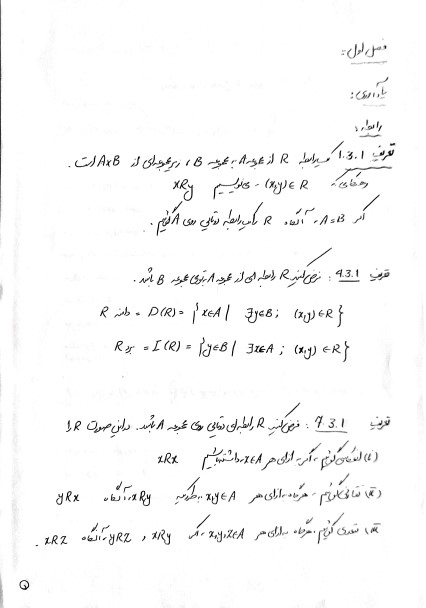 فصل اول:
یادآوری:
رابطه:
تعریف 1.3.1 یک رابطه R از مجموعه A به مجموعه B، زیرمجموعه‌ای از A×B است.
هنگامی که (x,y)∈R می‌نویسیم xRy
اگر A=B، آنگاه R را یک رابطه دوتایی روی A گوییم.
تعریف 4.3.1: فرض کنید R رابطه‌ای از مجموعه A به توی مجموعه B باشد.
R دامنه = D(R) = {x∈A | ∃y∈B; (x,y)∈R}
R برد = I(R) = {y∈B | ∃x∈A; (x,y)∈R}
تعریف 7.3.1: فرض کنید R رابطه‌ای دوتایی روی مجموعه A باشد. در این صورت R را
(i) انعکاسی گوییم، اگر به ازای هر x∈A داشته باشیم xRx
(ii) تقارنی گوییم، هرگاه به ازای هر x,y∈A به طوری که xRy، آنگاه yRx
(iii) تعدی گوییم، هرگاه به ازای هر x,y,z∈A، اگر xRy و yRz، آنگاه xRz.